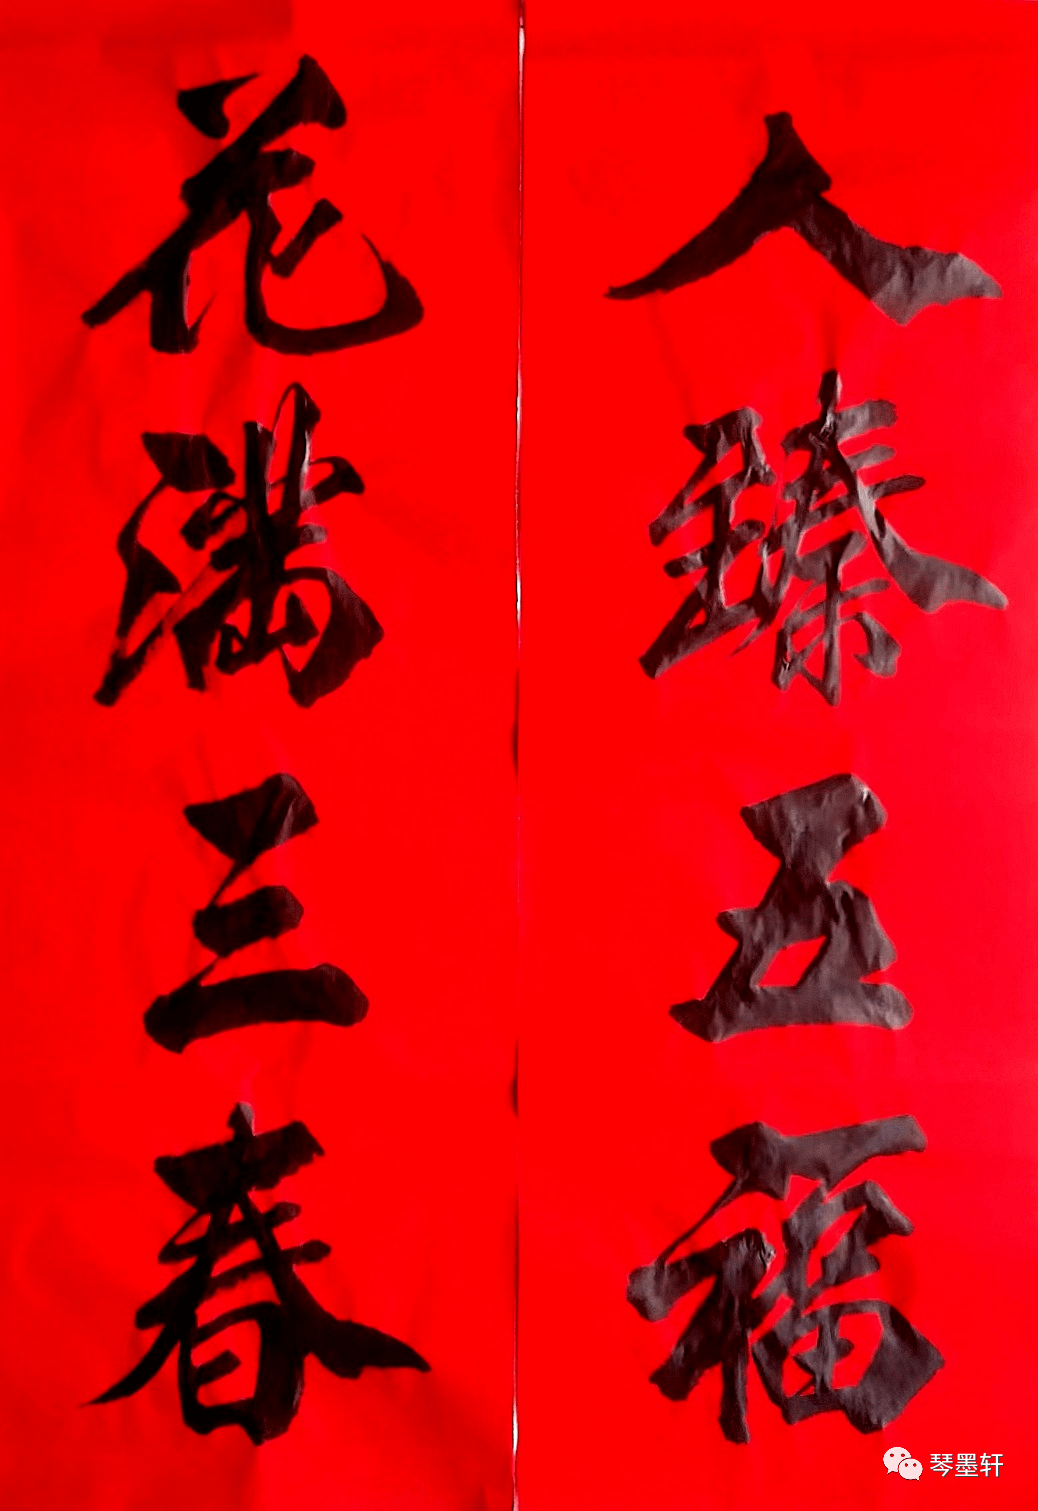 人臻五福
花满三春
琴墨轩